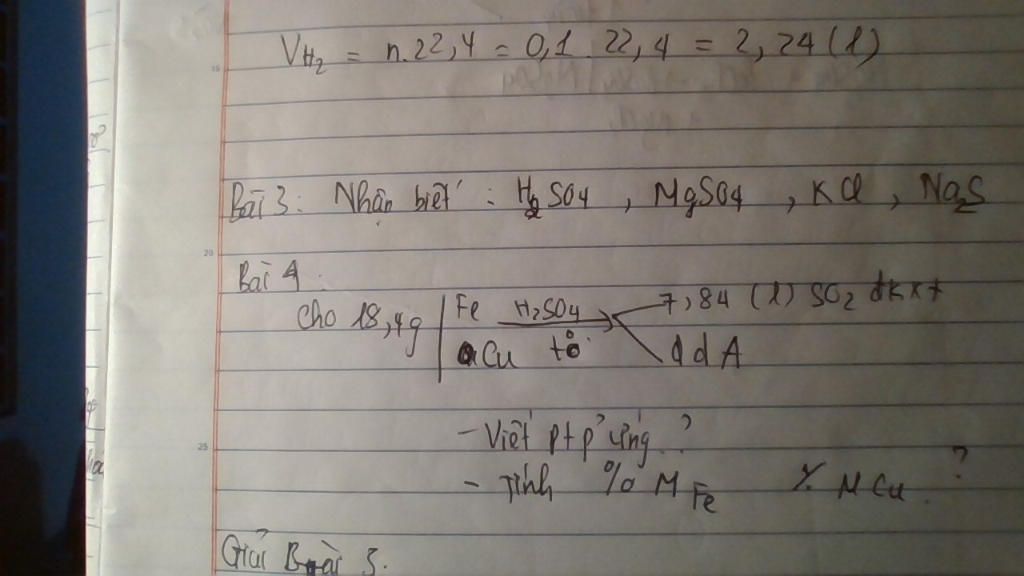 V H₂ = n.22,4 = 0,1.22,4 = 2,24 (l)
Bài 3: Nhận biết : H₂SO₄ , MgSO₄ , KCl , Na₂S
20
Bài 4
Cho 18,4g | Fe H₂SO₄ 7,84 (l) SO₂ đkxt
Cu t° d d A
- Viết pt p' ứng ?
25
- Tính % M Fe % M Cu ?
Giải Bài 3.